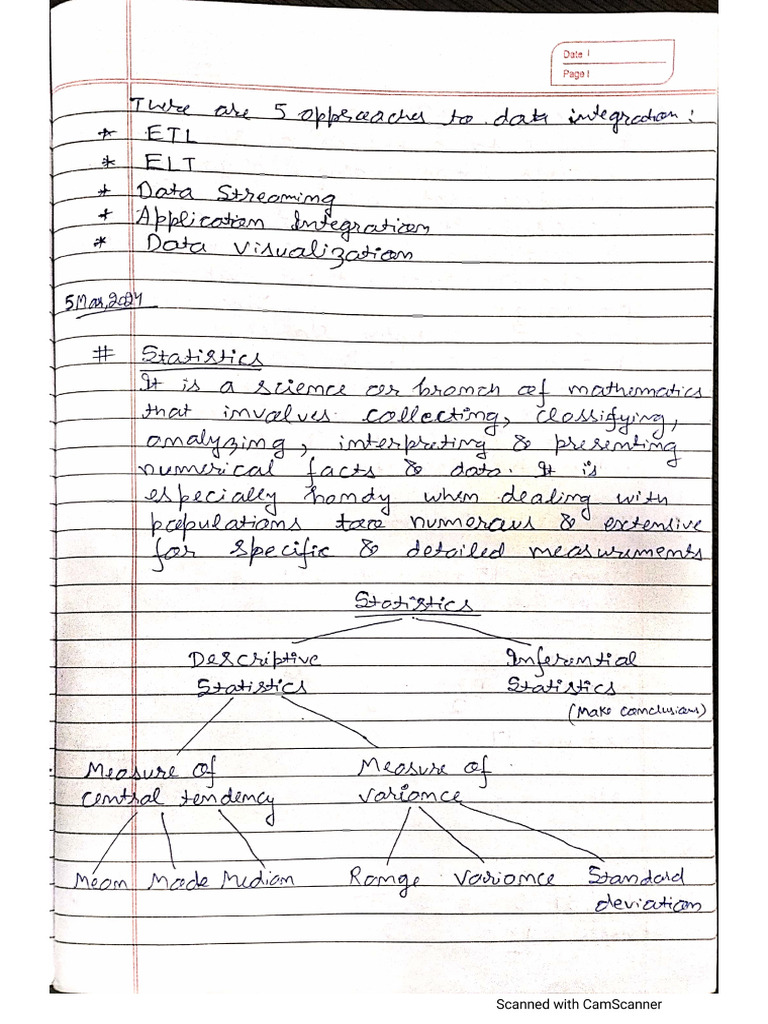 Date |
Page |
There are 5 approaches to data integration:
* ETL
* ELT
* Data Streaming
* Application Integration
* Data Visualization
5 Mar, 2024
# Statistics
It is a science or branch of mathematics
that involves collecting, classifying,
analyzing, interpreting & presenting
numerical facts & data. It is
especially handy when dealing with
populations too numerous & extensive
for specific & detailed measurements
Statistics
Descriptive Inferential
Statistics Statistics
(Make conclusions)
Measure of Measure of
central tendency variance
Mean Mode Median Range Variance Standard
deviation
Scanned with CamScanner